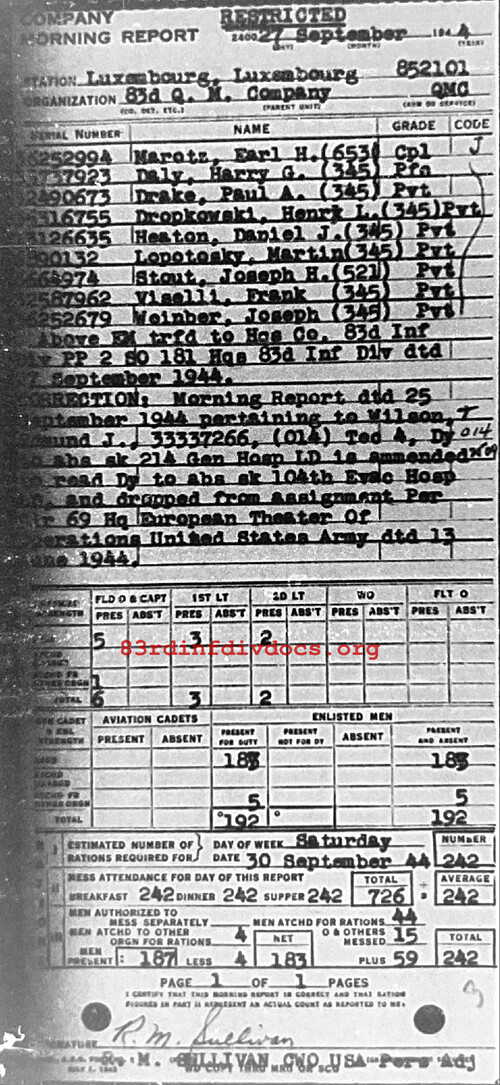 COMPANY RESTRICTED
MORNING REPORT 2400 27 September 194 4
(DAY) (MONTH) (YEAR)
STATION Luxembourg, Luxembourg 852101
ORGANIZATION 83d Q. M. Company QMC
(CO. DET. ETC.) (PARENT UNIT) (ARM OR SERVICE)
SERIAL NUMBER NAME GRADE CODE
6252994 Marotz, Earl H.(653) Cpl J
5737923 Daly, Harry G. (345) Pfc
2490673 Drake, Paul A. (345) Pvt
316755 Dropkowski, Henry L.(345)Pvt
3126635 Heaton, Daniel J.(345) Pvt
390132 Lopotosky, Martin(345) Pvt
664974 Stout, Joseph H.(521) Pvt
2587962 Viselli, Frank (345) Pvt
6252679 Weinber, Joseph (345) Pvt
Above EM trfd to Hqs Co. 83d Inf
Div PP 2 SO 181 Hqs 83d Inf Div dtd
27 September 1944.
CORRECTION: Morning Report dtd 25
September 1944 pertaining to Wilson, T
Edmund J., 33337266, (014) Tec 4, Dy 014
to abs sk 214 Gen Hosp LD is ammended
to read Dy to abs sk 104th Evac Hosp
LD, and dropped from assignment Per
Cir 69 Hq European Theater Of
Operations United States Army dtd 13
June 1944.
83rdinfdivdocs.org
STRENGTH FLD O & CAPT 1ST LT 2D LT WO FLT O
PRES ABS'T PRES ABS'T PRES ABS'T PRES ABS'T PRES ABS'T
5 3 2
ATCHD FR OTHER ORGN 1
TOTAL 6 3 2
AVN CADET & ENL STRENGTH AVIATION CADETS ENLISTED MEN
PRESENT ABSENT PRESENT FOR DUTY PRESENT NOT FOR DY ABSENT PRESENT AND ABSENT
ASGD 187 187
ATCHD FR OTHER ORGN 5 5
TOTAL 192 192
ESTIMATED NUMBER OF RATIONS REQUIRED FOR DAY OF WEEK Saturday NUMBER
DATE 30 September 44 242
MESS ATTENDANCE FOR DAY OF THIS REPORT TOTAL ÷ AVERAGE
BREAKFAST 242 DINNER 242 SUPPER 242 726 3 242
MEN AUTHORIZED TO MESS SEPARATELY MEN ATCHD FOR RATIONS 44
MEN ATCHD TO OTHER ORGN FOR RATIONS 4 NET O & OTHERS MESSED 15 TOTAL
MEN PRESENT : 187 LESS 4 183 PLUS 59 242
PAGE 1 OF 1 PAGES
I CERTIFY THAT THIS MORNING REPORT IS CORRECT AND THAT RATION
FIGURES IN PART II REPRESENT AN ACTUAL COUNT AS REPORTED TO ME:
SIGNATURE R. M. Sullivan
R. M. SULLIVAN CWO USA Pers Adj
WD COPY THRU MRU OR SCU